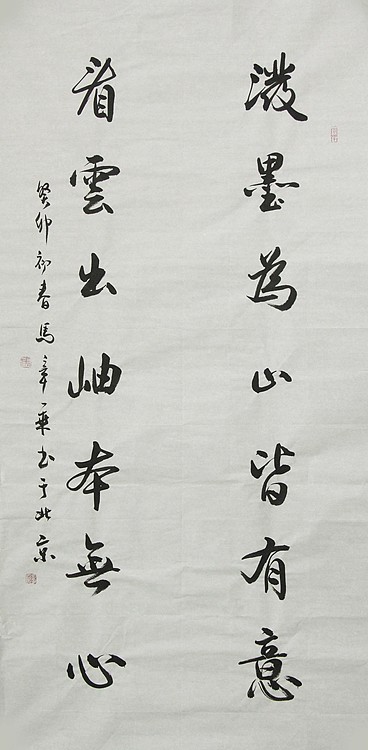 潑墨為山皆有意
看雲出岫本無心
癸卯初春馬章乘书于北京